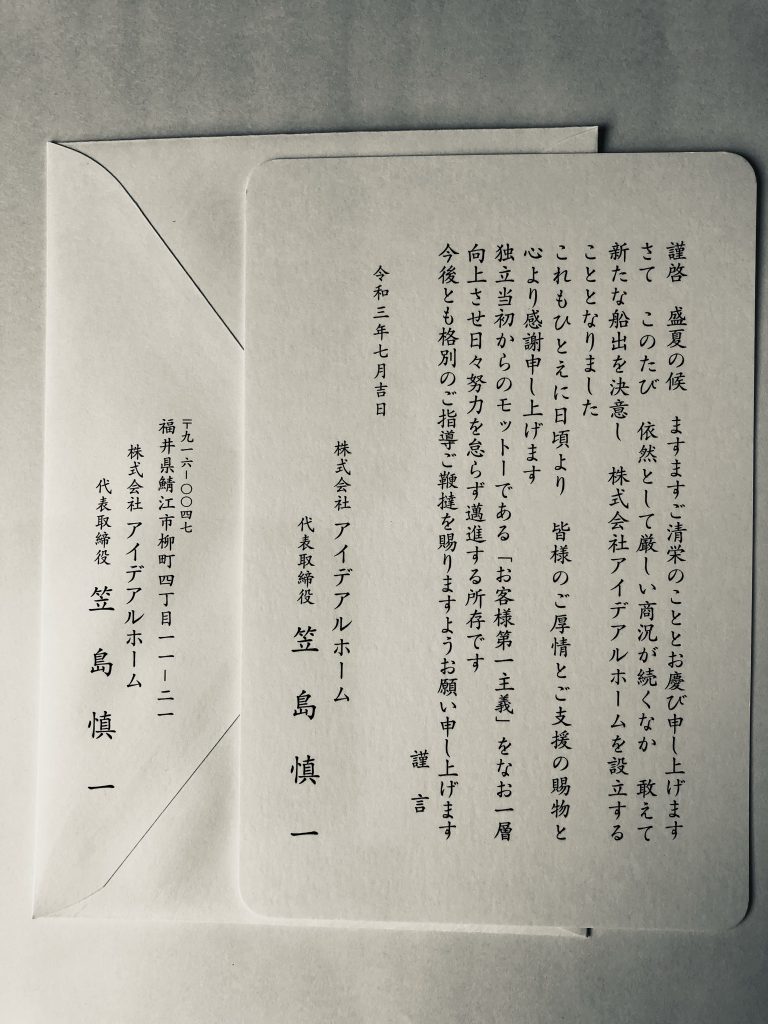 謹啓　盛夏の候　ますますご清栄のこととお慶び申し上げます
さて　このたび　依然として厳しい商況が続くなか　敢えて
新たな船出を決意し　株式会社アイデアルホームを設立する
こととなりました
これもひとえに日頃より　皆様のご厚情とご支援の賜物と
心より感謝申し上げます
独立当初からのモットーである「お客様第一主義」をなお一層
向上させ日々努力を怠らず邁進する所存です
今後とも格別のご指導ご鞭撻を賜りますようお願い申し上げます
謹言
令和三年七月吉日
株式会社 アイデアルホーム
代表取締役　笠島慎一
〒九一六−〇〇四七
福井県鯖江市柳町四丁目一一−二一
株式会社 アイデアルホーム
代表取締役　笠島慎一